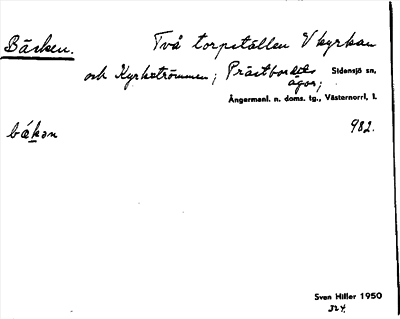 Bäcken. Två torpställen V kyrkan
och Kyrkströmmen; Prästbordets Sidensjö sn,
ägor;
Ångermanl. n. doms. tg., Västernorrl. l.
982.
Sven Hiller 1950
324.